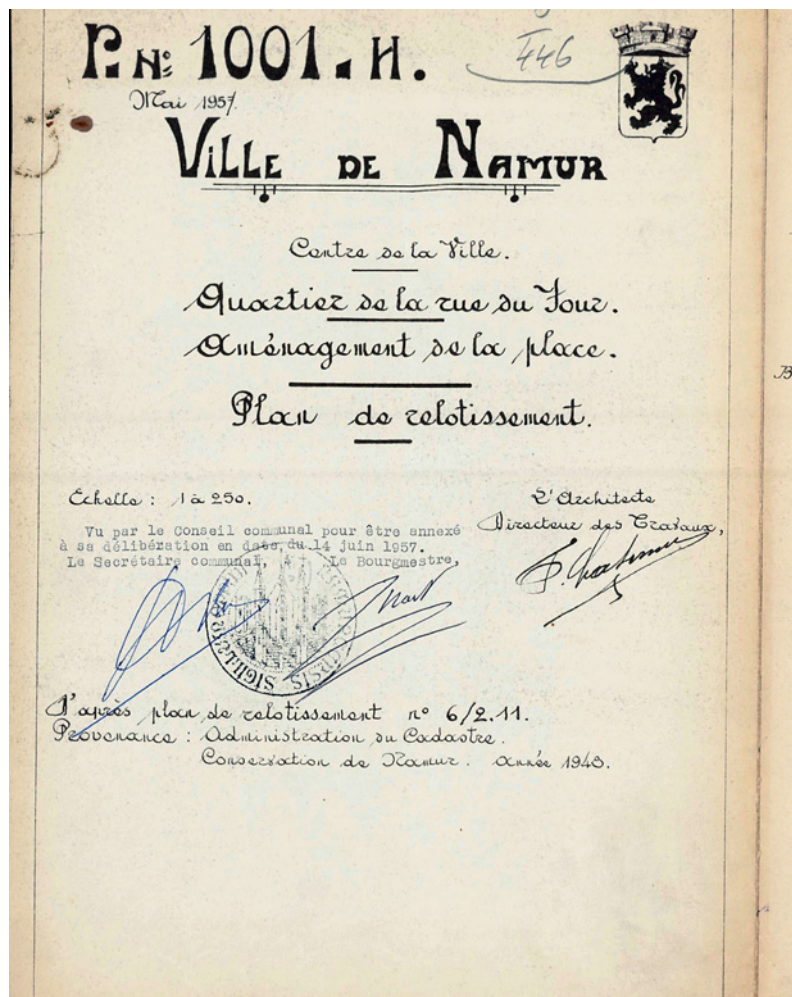 P. N°: 1001. H.
446
Mai 1957.
VILLE DE NAMUR
Centre de la Ville.
Quartier de la rue du Four.
Aménagement de la place.
Plan de relotissement.
Échelle : 1 à 250.
L'Architecte
Directeur des Travaux,
Vu par le Conseil communal pour être annexé
à sa délibération en date du 14 juin 1957.
Le Secrétaire communal, Le Bourgmestre,
D'après plan de relotissement n° 6/2.11.
Provenance : Administration du Cadastre.
Conservation de Namur. Année 1948.
B